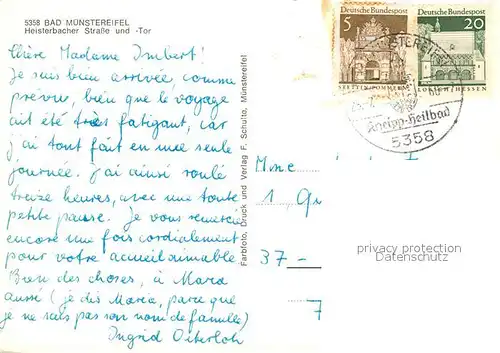 5358 BAD MÜNSTEREIFEL
Heisterbacher Straße und -Tor
Chère Madame Imbert!
Je suis bien arrivée, comme
prévue, bien que le voyage
ait été très fatigant, car
j'ai tout fait en une seule
journée. J'ai ainsi roulé
treize heures, avec une toute
petite pause. Je vous remercie
encore une fois cordialement
pour votre accueil aimable
Bien des choses, à Mara
aussi (je dis Maria, parce que
je ne sais pas son nom de famille)
Ingrid Osterloh
Farbfoto, Druck und Verlag F. Schulte, Münstereifel
Deutsche Bundespost
5
STETTIN/POMMERN
Deutsche Bundespost
20
LORSCH/HESSEN
Kneipp-Heilbad
5358
Mme
1
37-
7
privacy protection
Datenschutz